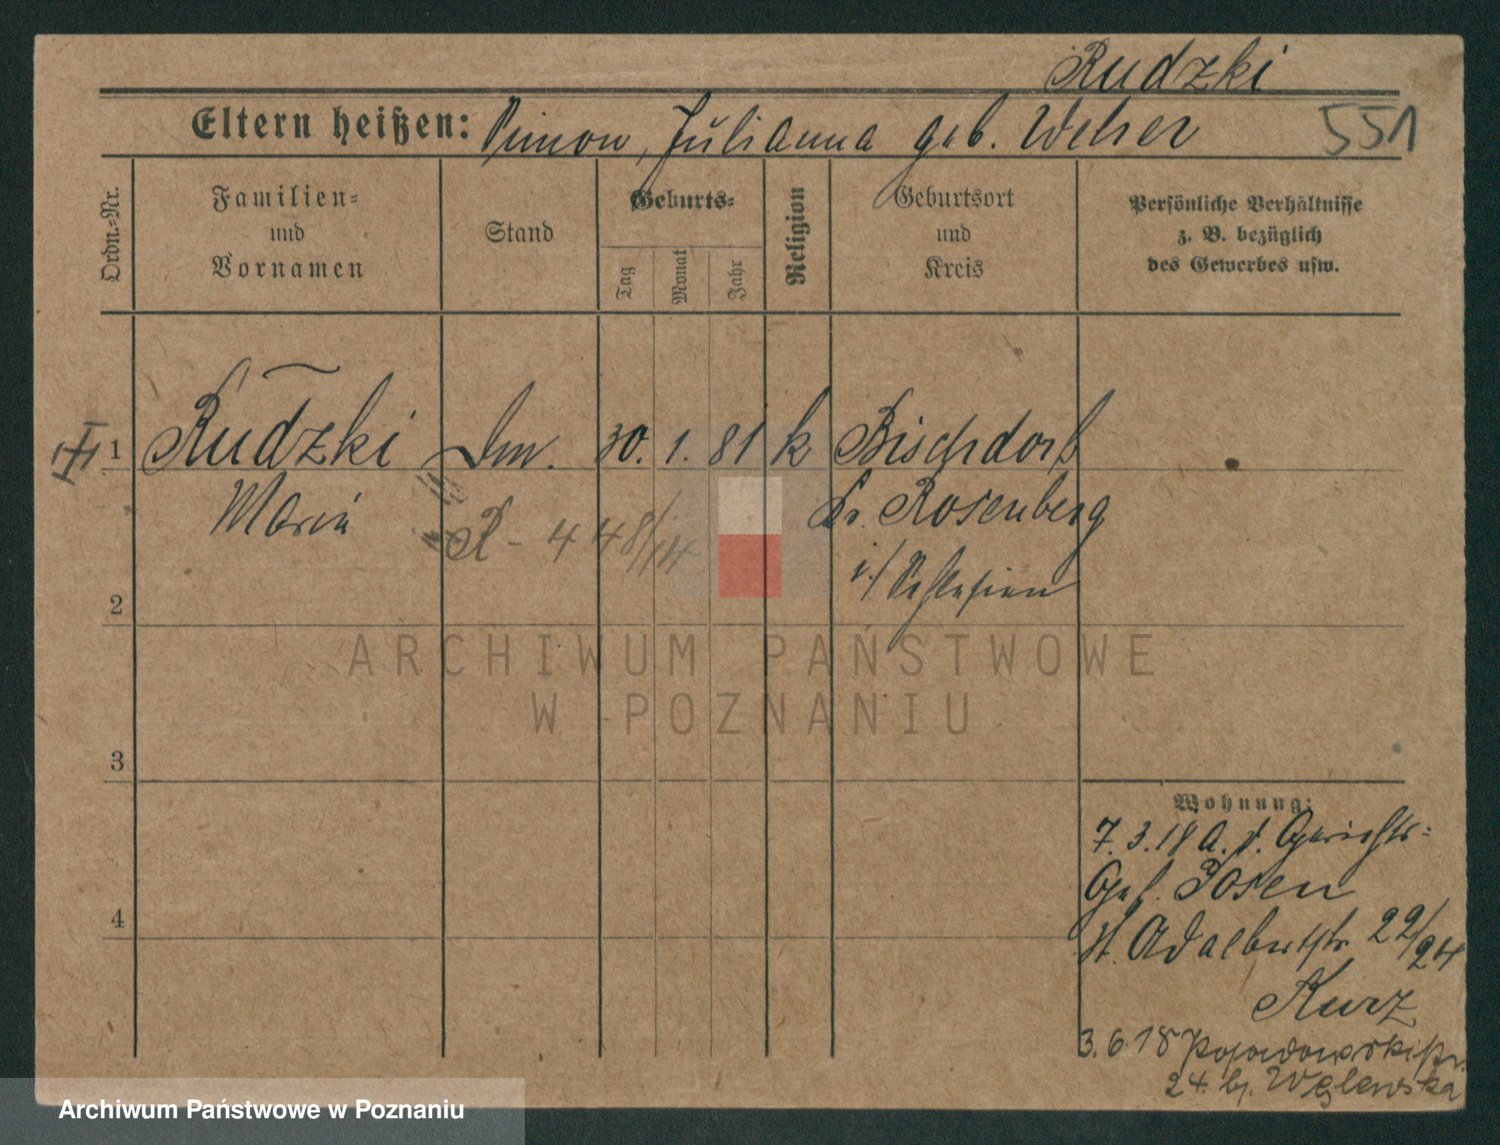 Rudzki
Eltern heißen: Simon, Julianna geb. Welser
551
Ordn.=Nr.
Familien=
und
Vornamen
Stand
Geburts=
Tag
Monat
Jahr
Religion
Geburtsort
und
Kreis
Persönliche Verhältnisse
z. B. bezüglich
des Gewerbes usw.
1 Rudzki 30. 1. 81 k Bischdorf
Maria
Kr. Rosenberg
R - 448/14
i./Schlesien
2
ARCHIWUM PAŃSTWOWE
W POZNANIU
3
Wohnung:
7.3.18 Gerichts=
Gef. Posen
4
St. Adalbertstr. 22/24
Kurz
3.6.18
24. bj. Węglewska
Archiwum Państwowe w Poznaniu